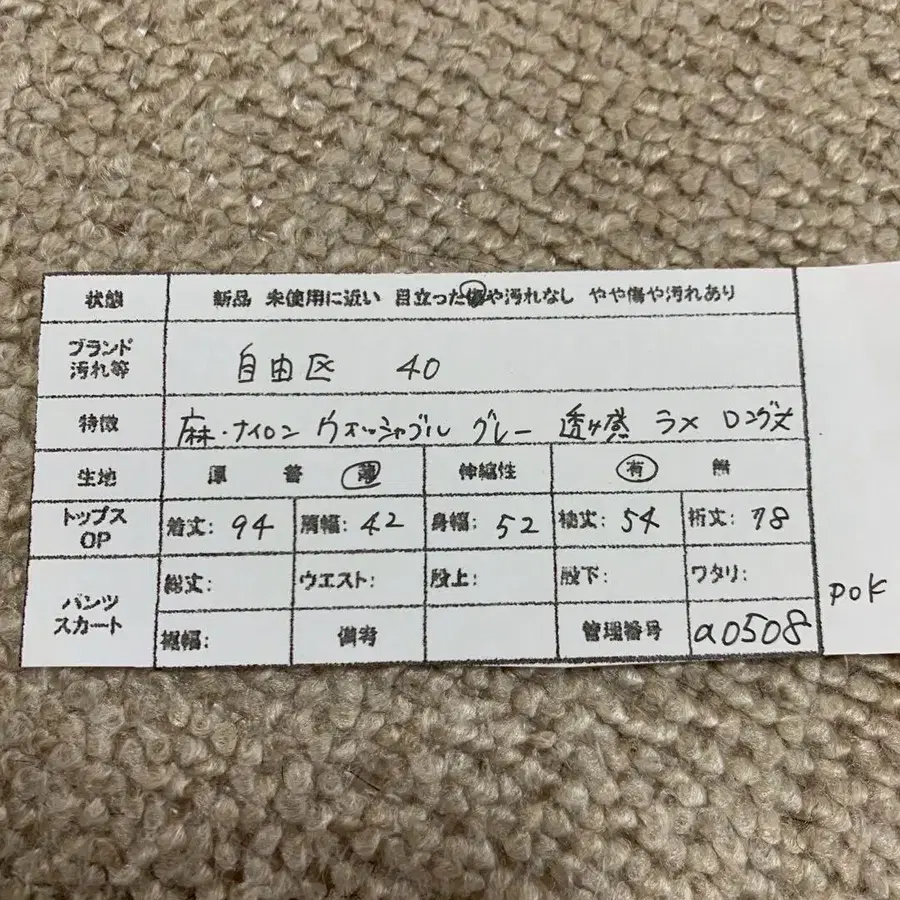 状態 新品 未使用に近い 目立った傷や汚れなし やや傷や汚れあり
ブランド
汚れ等
自由区 40
特徴 麻・ナイロン ウォッシャブル グレー 透け感 ラメ ロング丈
生地 厚 普 薄 伸縮性 有 無
トップス
OP
着丈: 94 肩幅: 42 身幅: 52 袖丈: 54 裄丈: 78
パンツ
スカート
総丈: ウエスト: 股上: 股下: ワタリ:
裾幅: 備考 管理番号 a0508
POK